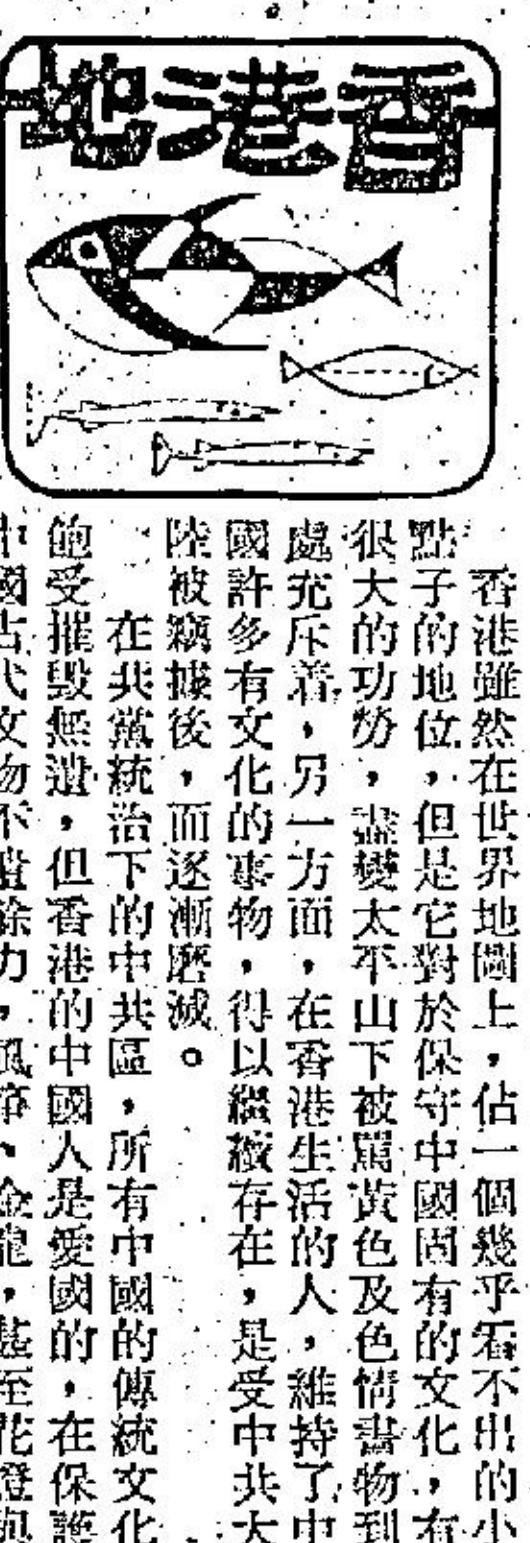 香港地
香港雖然在世界地圖上，佔一個幾乎看不出的小
點子的地位，但是它對於保守中國固有的文化，有
很大的功勞，儘變太平山下被罵黃色及色情書物到
處充斥着，另一方面，在香港生活的人，維持了中
國許多有文化的事物，得以繼續存在，是受中共大
陸被竊據後，而逐漸磨滅。
在共黨統治下的中共區，所有中國的傳統文化
飽受摧毀無遺，但香港的中國人是愛國的，在保護
中國古代文物不遺餘力，風箏、金龍，甚至花燈與